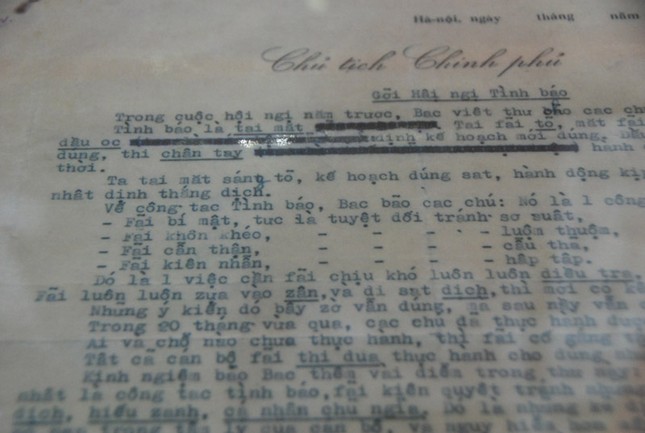 Hà-nội, ngày tháng năm
Chủ tịch Chính phủ
Gởi Hội ngị Tình báo
Trong cuộc hội ngị năm trước, Bac viết thư bảo các ch
Tình báo là tai mắt Tai fải tỏ, mắt fải
đầu oc minh kế hoạch mới đúng. Đầu
đúng, thì chân tay hành
thời.
Ta tai mắt sáng tỏ, kế hoạch đúng sát, hành động kịp
nhất định thắng địch.
Về công-tac Tình báo, Bac bảo các chú: Nó là 1 công
- Fải bí mật, tức là tuyệt đối tránh sơ xuất,
- Fải khôn khéo, - - - - luộm thuộm,
- Fải cẩn thận, - - - - cẩu thả,
- Fải kiên nhẫn, - - - - hấp tấp.
Đó là 1 việc cần fải chịu khó luôn luôn điều tra,
Fải luôn luôn zựa vào zân, và đi sát địch, thì mới có kế
Những ý kiến đó bây zờ vẫn đúng, mà sau này vẫn đ
Trong 20 tháng vừa qua, các chú đã thực hành được
Ai và chỗ nào chưa thực hành, thì fải cố gắng t
Tất cả cán bộ fải thi đua thực hành cho đúng nh
Kinh ngiệm bảo Bac thêm vài điểm trong thư này:
nhất là công tac tình báo, fải kiên quyết tránh nh
địch, hiếu zanh, cá nhân chủ ngĩa. Đó là những kẻ đị
của cán bộ, và nguy hiểm hơn